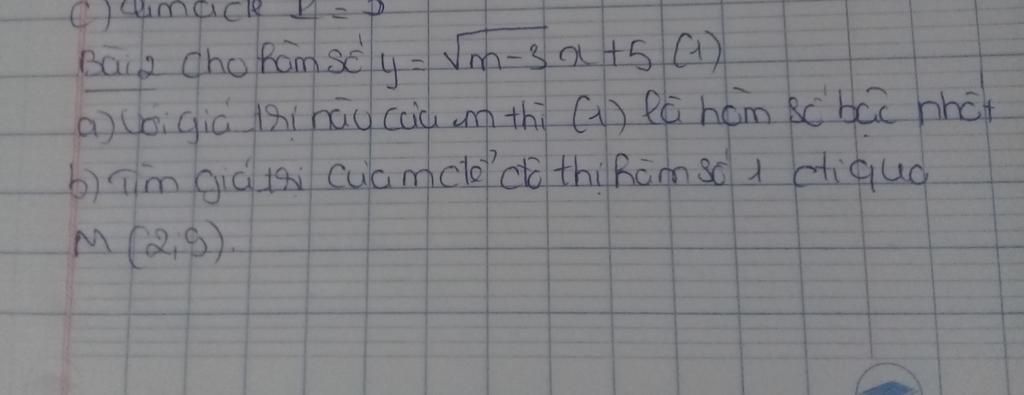 Bài 2 Cho hàm số y = √m-3 x + 5 (1)
a) Với giá trị nào của m thì (1) là hàm số bậc nhất
b) Tìm giá trị của m để đồ thị hàm số 1 đi qua
M (2,9).